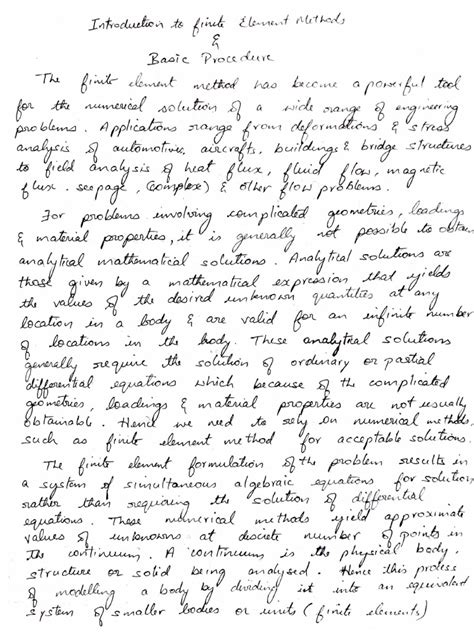 Introduction to finite Element Methods
&
Basic Procedure
The finite element method has become a powerful tool
for the numerical solution of a wide range of engineering
problems. Applications range from deformations & stress
analysis of automotive, aircrafts, buildings & bridge structures
to field analysis of heat flux, fluid flow, magnetic
flux. seepage, (complex) & other flow problems.
For problems involving complicated geometries, loadings
& material properties, it is generally not possible to obtain
analytical mathematical solutions. Analytical solutions are
those given by a mathematical expression that yields
the values of the desired unknown quantities at any
location in a body & are valid for an infinite number
of locations in the body. These analytical solutions
generally require the solution of ordinary or partial
differential equations which because of the complicated
geometries, loadings & material properties are not usually
obtainable. Hence we need to rely on numerical methods,
such as finite element method for acceptable solutions.
The finite element formulation of the problem results in
a system of simultaneous algebraic equations for solution
rather than requiring the solution of differential
equations. These numerical methods yield approximate
values of unknowns at discrete number of points in
the continuum. A continuum is the physical body,
structure or solid being analysed. Hence this process
of modelling a body by dividing it into an equivalent
system of smaller bodies or units (finite elements)